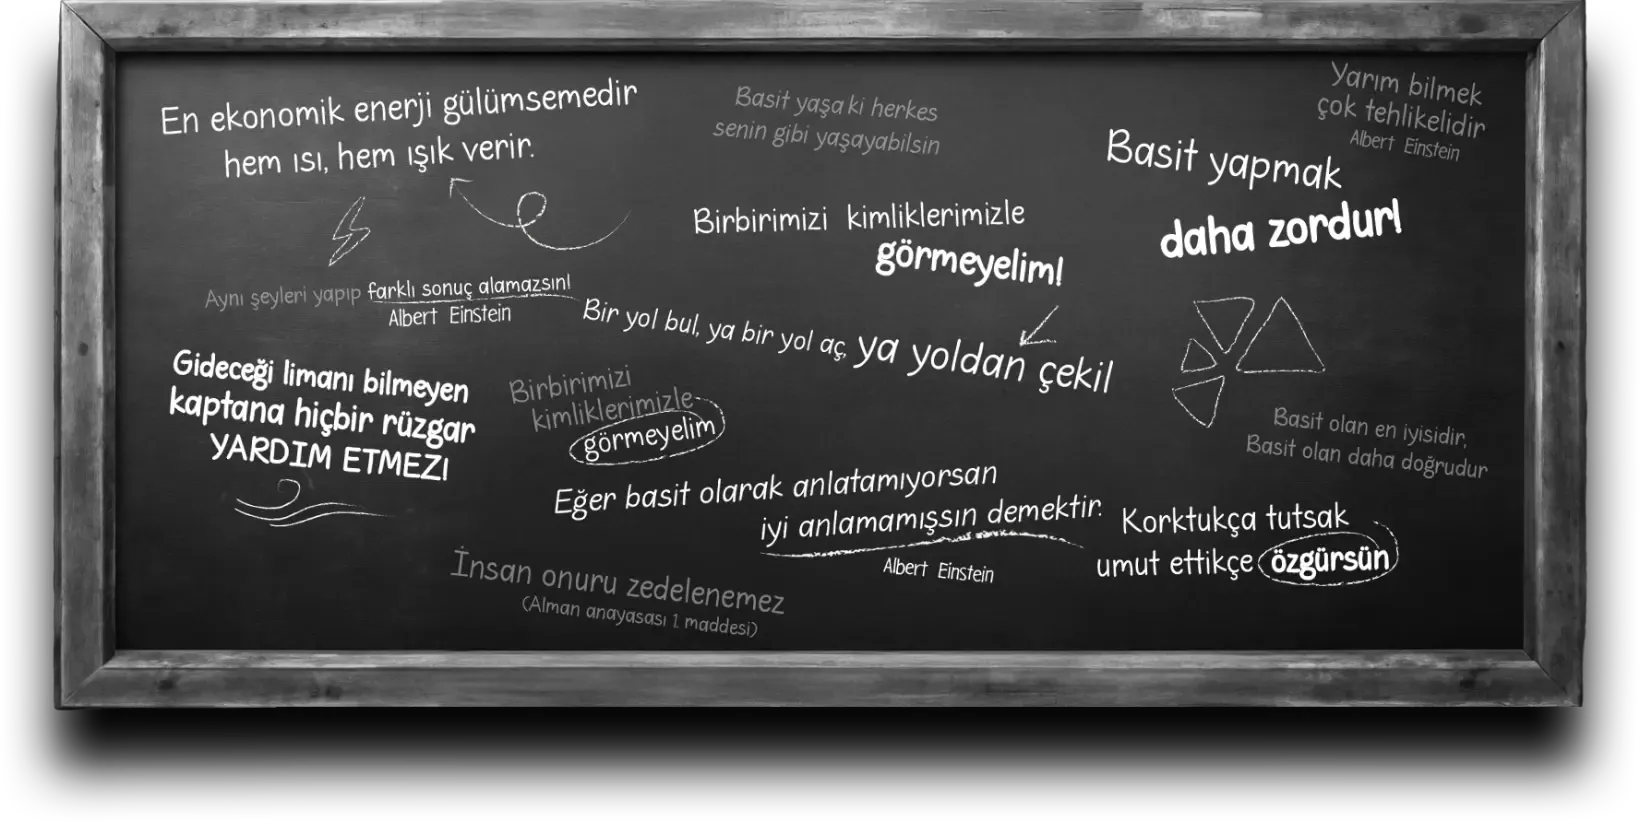 En ekonomik enerji gülümsemedir
hem ısı, hem ışık verir.
Basit yaşa ki herkes
senin gibi yaşayabilsin
Yarım bilmek
çok tehlikelidir
Albert Einstein
Basit yapmak
daha zordur!
Birbirimizi kimliklerimizle
görmeyelim!
Aynı şeyleri yapıp farklı sonuç alamazsın!
Albert Einstein
Bir yol bul, ya bir yol aç, ya yoldan çekil
Gideceği limanı bilmeyen
kaptana hiçbir rüzgar
YARDIM ETMEZ!
Birbirimizi
kimliklerimizle
görmeyelim
Basit olan en iyisidir,
Basit olan daha doğrudur
Eğer basit olarak anlatamıyorsan
iyi anlamamışsın demektir.
Albert Einstein
Korktukça tutsak
umut ettikçe özgürsün
İnsan onuru zedelenemez
(Alman anayasası 1. maddesi)